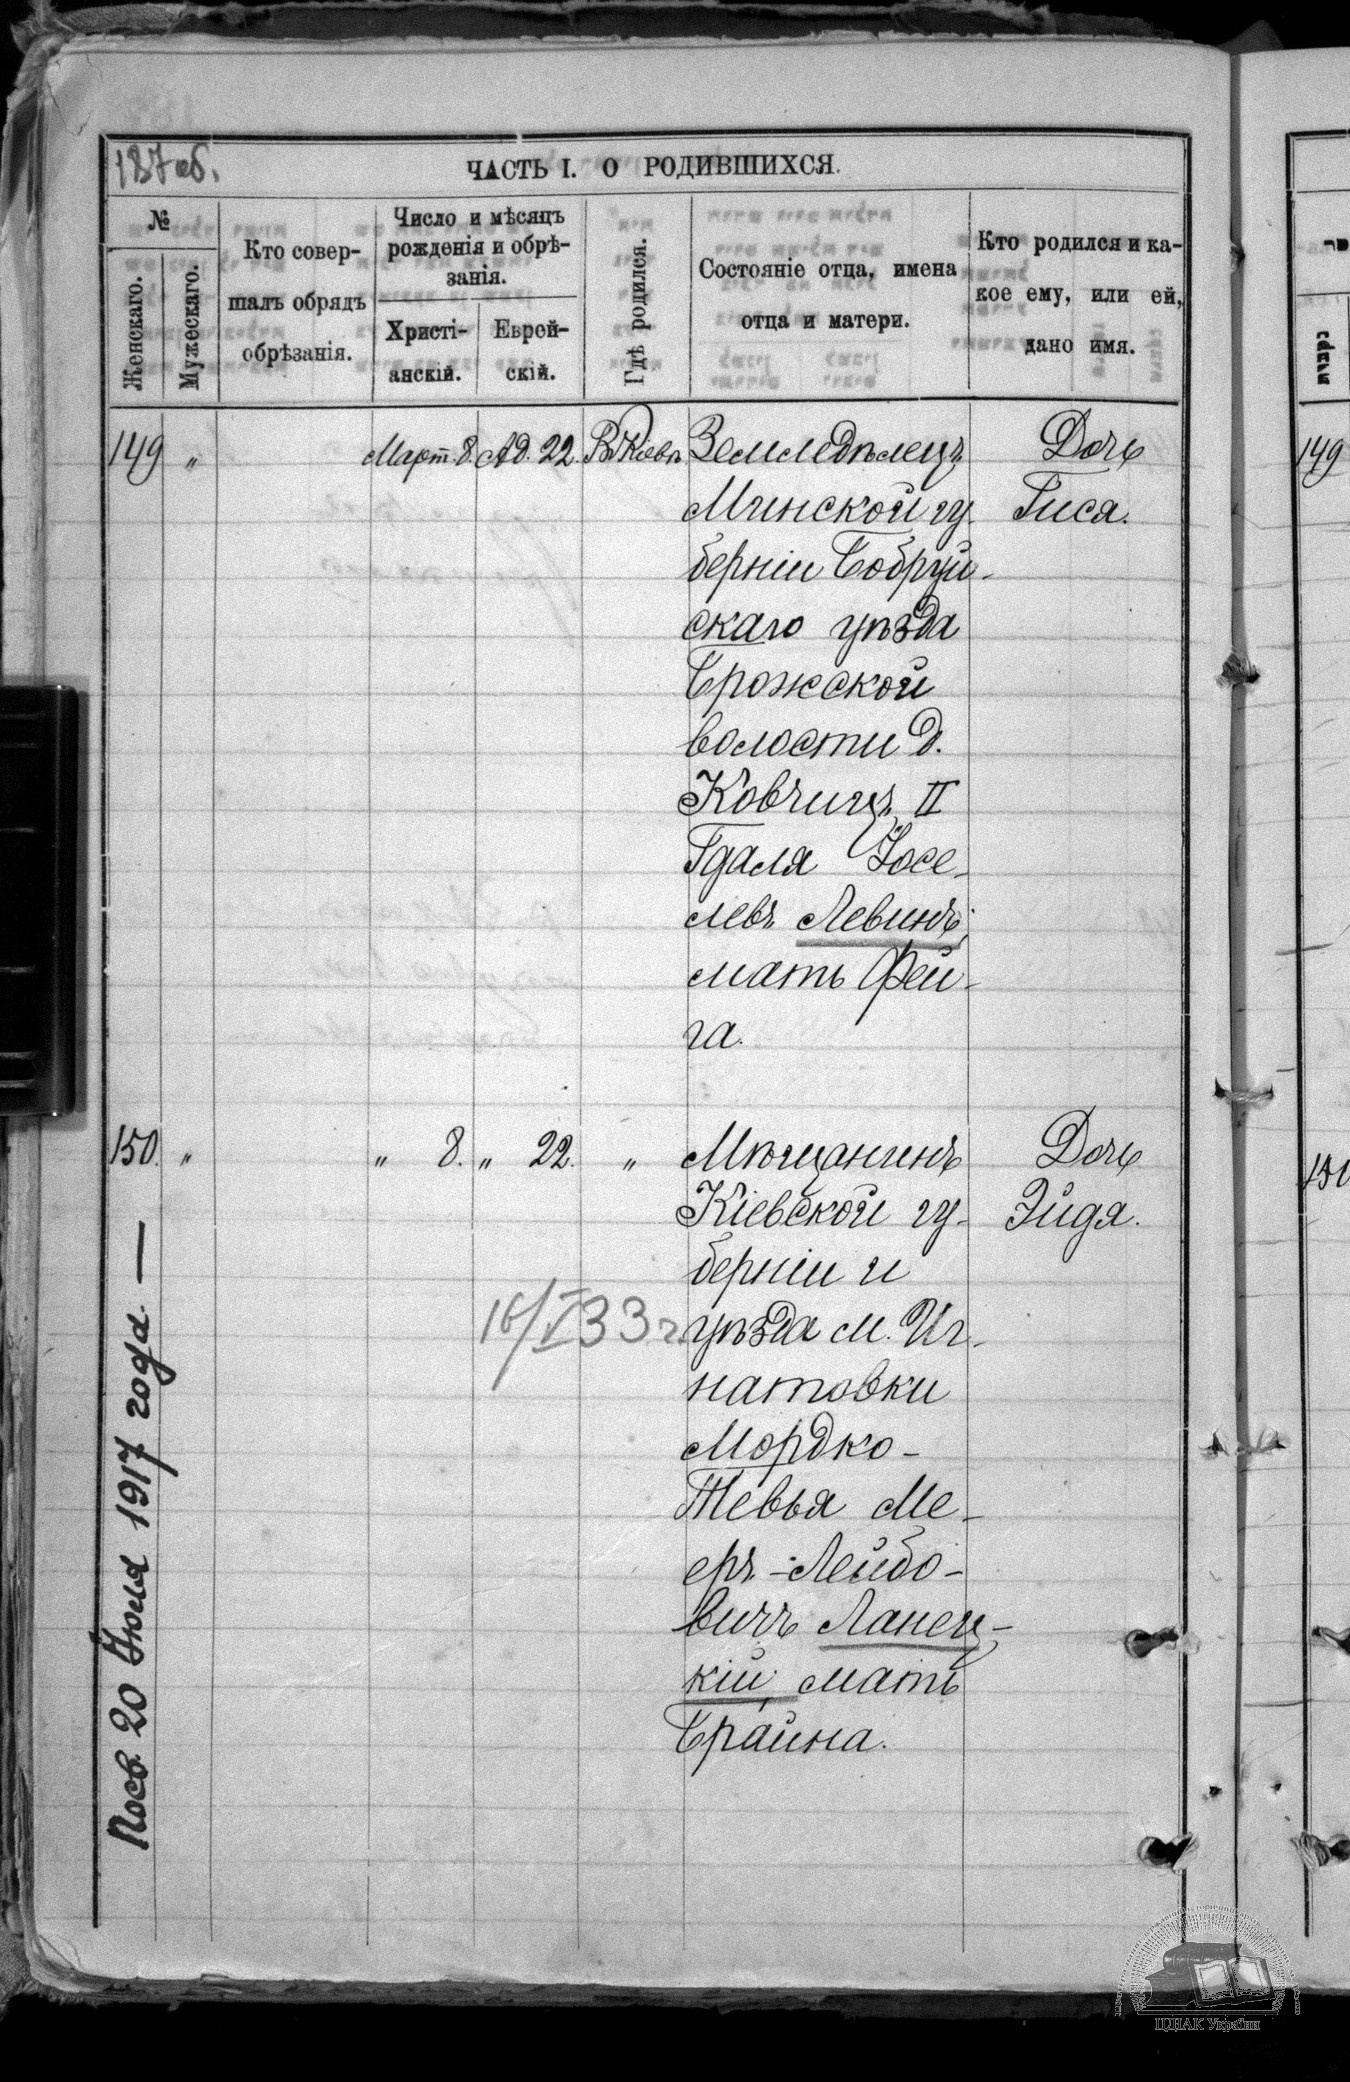 187 об.
ЧАСТЬ I. О РОДИВШИХСЯ.
№
Женскаго.
Мужескаго.
Кто совер-
шалъ обрядъ
обрѣзанія.
Число и мѣсяцъ
рожденія и обрѣ-
занія.
Христі-
анскій.
Еврей-
скій.
Гдѣ родился.
Состояніе отца, имена
отца и матери.
Кто родился и ка-
кое ему, или ей,
дано имя.
149 " Март. 8. Ад. 22. В Кіевѣ Земледѣлецъ Дочь
Минской гу- Гися.
берніи Бобруй-
скаго уѣзда
Брожской
волости д.
Ковчицъ II
Гдаля Іосе-
левъ Левинъ;
мать Фей-
га.
150. " " 8. " 22. " Мѣщанинъ Дочь
Кіевской гу- Эйдя.
берніи и
уѣзда м. Иг-
натовки
Мордко-
Тевья Ме-
еръ-Лейбо-
вичъ Ланец-
кій, мать
Брайна.
16/V 33 г.
Посв 20 Июля 1917 года —
149
150
ЦДІАК України